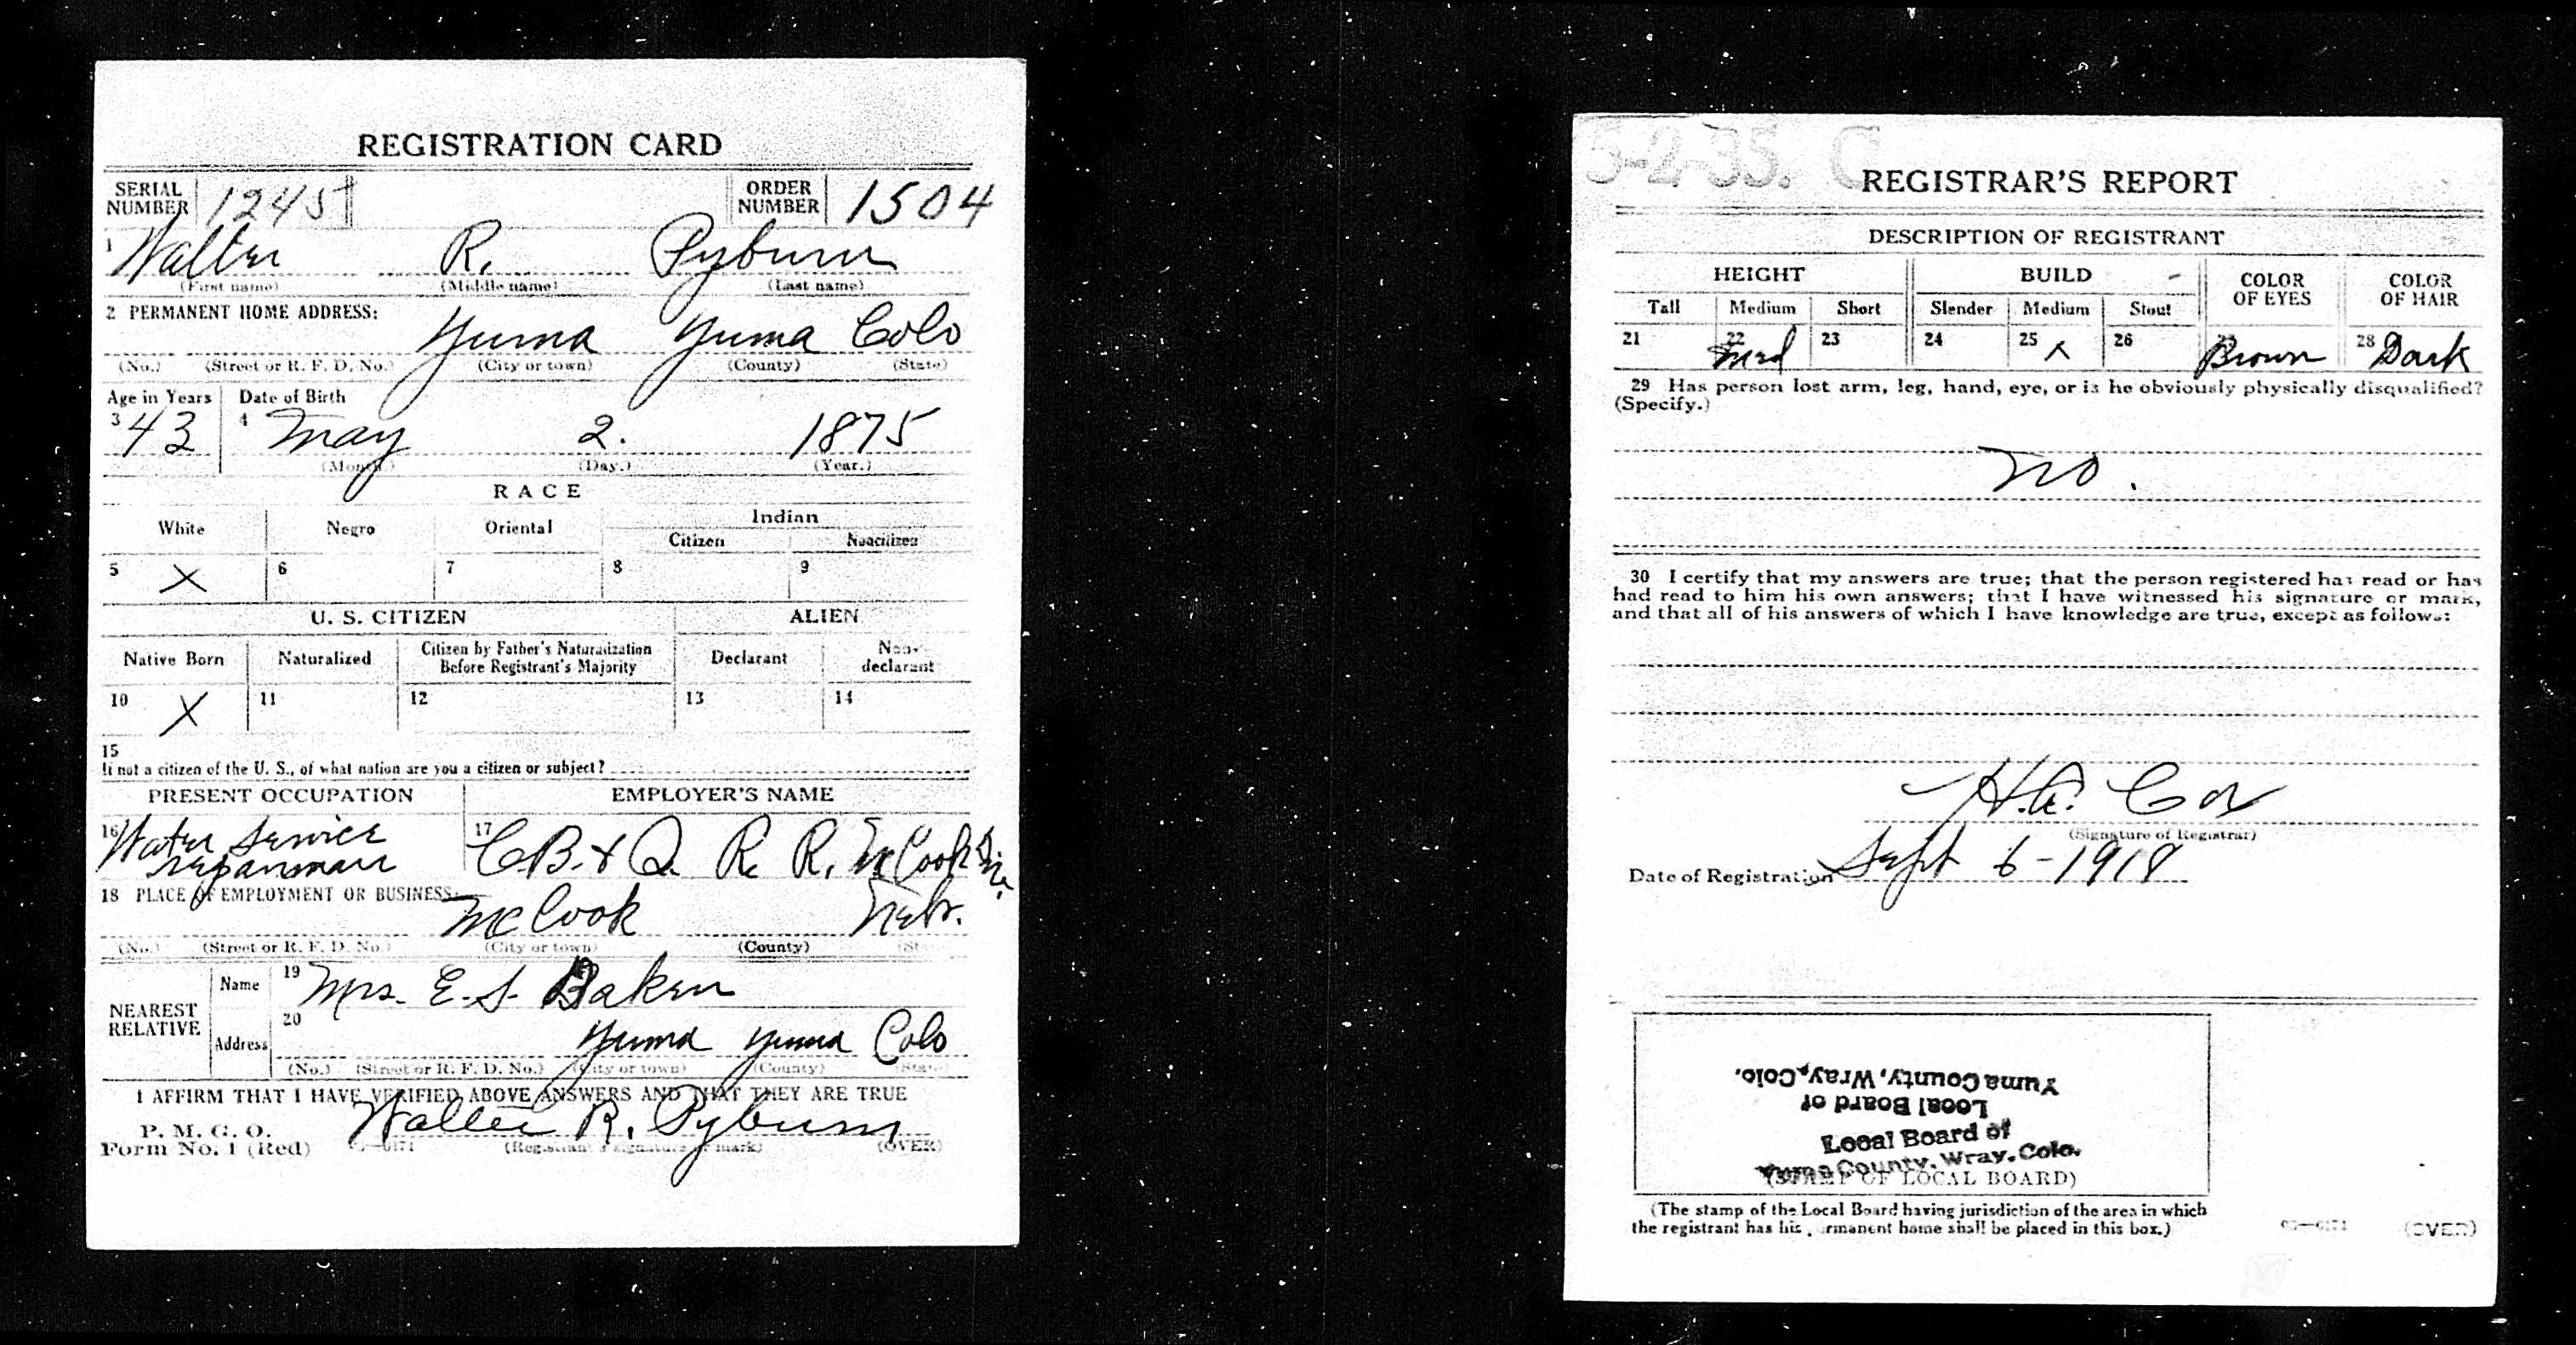 REGISTRATION CARD
SERIAL NUMBER 1245 ORDER NUMBER 1504
1 Walter R. Pyburn
(First name) (Middle name) (Last name)
2 PERMANENT HOME ADDRESS:
Yuma Yuma Colo
(No.) (Street or R. F. D. No.) (City or town) (County) (State)
Age in Years Date of Birth
3 43 4 May 2. 1875
(Month.) (Day.) (Year.)
RACE
White Negro Oriental Indian
Citizen Noncitizen
5 X 6 7 8 9
U. S. CITIZEN ALIEN
Native Born Naturalized Citizen by Father's Naturalization Before Registrant's Majority Declarant Non-declarant
10 X 11 12 13 14
15
If not a citizen of the U. S., of what nation are you a citizen or subject?
PRESENT OCCUPATION EMPLOYER'S NAME
16 Water Service repairman 17 C.B. & Q. R. R. McCook Div.
18 PLACE OF EMPLOYMENT OR BUSINESS:
McCook Nebr.
(No.) (Street or R. F. D. No.) (City or town) (County) (State)
NEAREST RELATIVE
Name 19 Mrs. E. S. Baker
Address 20 Yuma Yuma Colo
(No.) (Street or R. F. D. No.) (City or town) (County) (State)
I AFFIRM THAT I HAVE VERIFIED ABOVE ANSWERS AND THAT THEY ARE TRUE
P. M. G. O.
Form No. 1 (Red) Walter R. Pyburn
(Registrant's signature or mark) (OVER)
5-2-35. C
REGISTRAR'S REPORT
DESCRIPTION OF REGISTRANT
HEIGHT BUILD COLOR OF EYES COLOR OF HAIR
Tall Medium Short Slender Medium Stout
21 22 Med 23 24 25 X 26 27 Brown 28 Dark
29 Has person lost arm, leg, hand, eye, or is he obviously physically disqualified?
(Specify.)
No.
30 I certify that my answers are true; that the person registered has read or has
had read to him his own answers; that I have witnessed his signature or mark,
and that all of his answers of which I have knowledge are true, except as follows:
Cox
(Signature of Registrar)
Date of Registration Sept 6-1918
Yuma County, Wray, Colo.
Local Board of
Local Board of
Yuma County, Wray, Colo.
(STAMP OF LOCAL BOARD)
(The stamp of the Local Board having jurisdiction of the area in which
the registrant has his permanent home shall be placed in this box.)
(OVER)